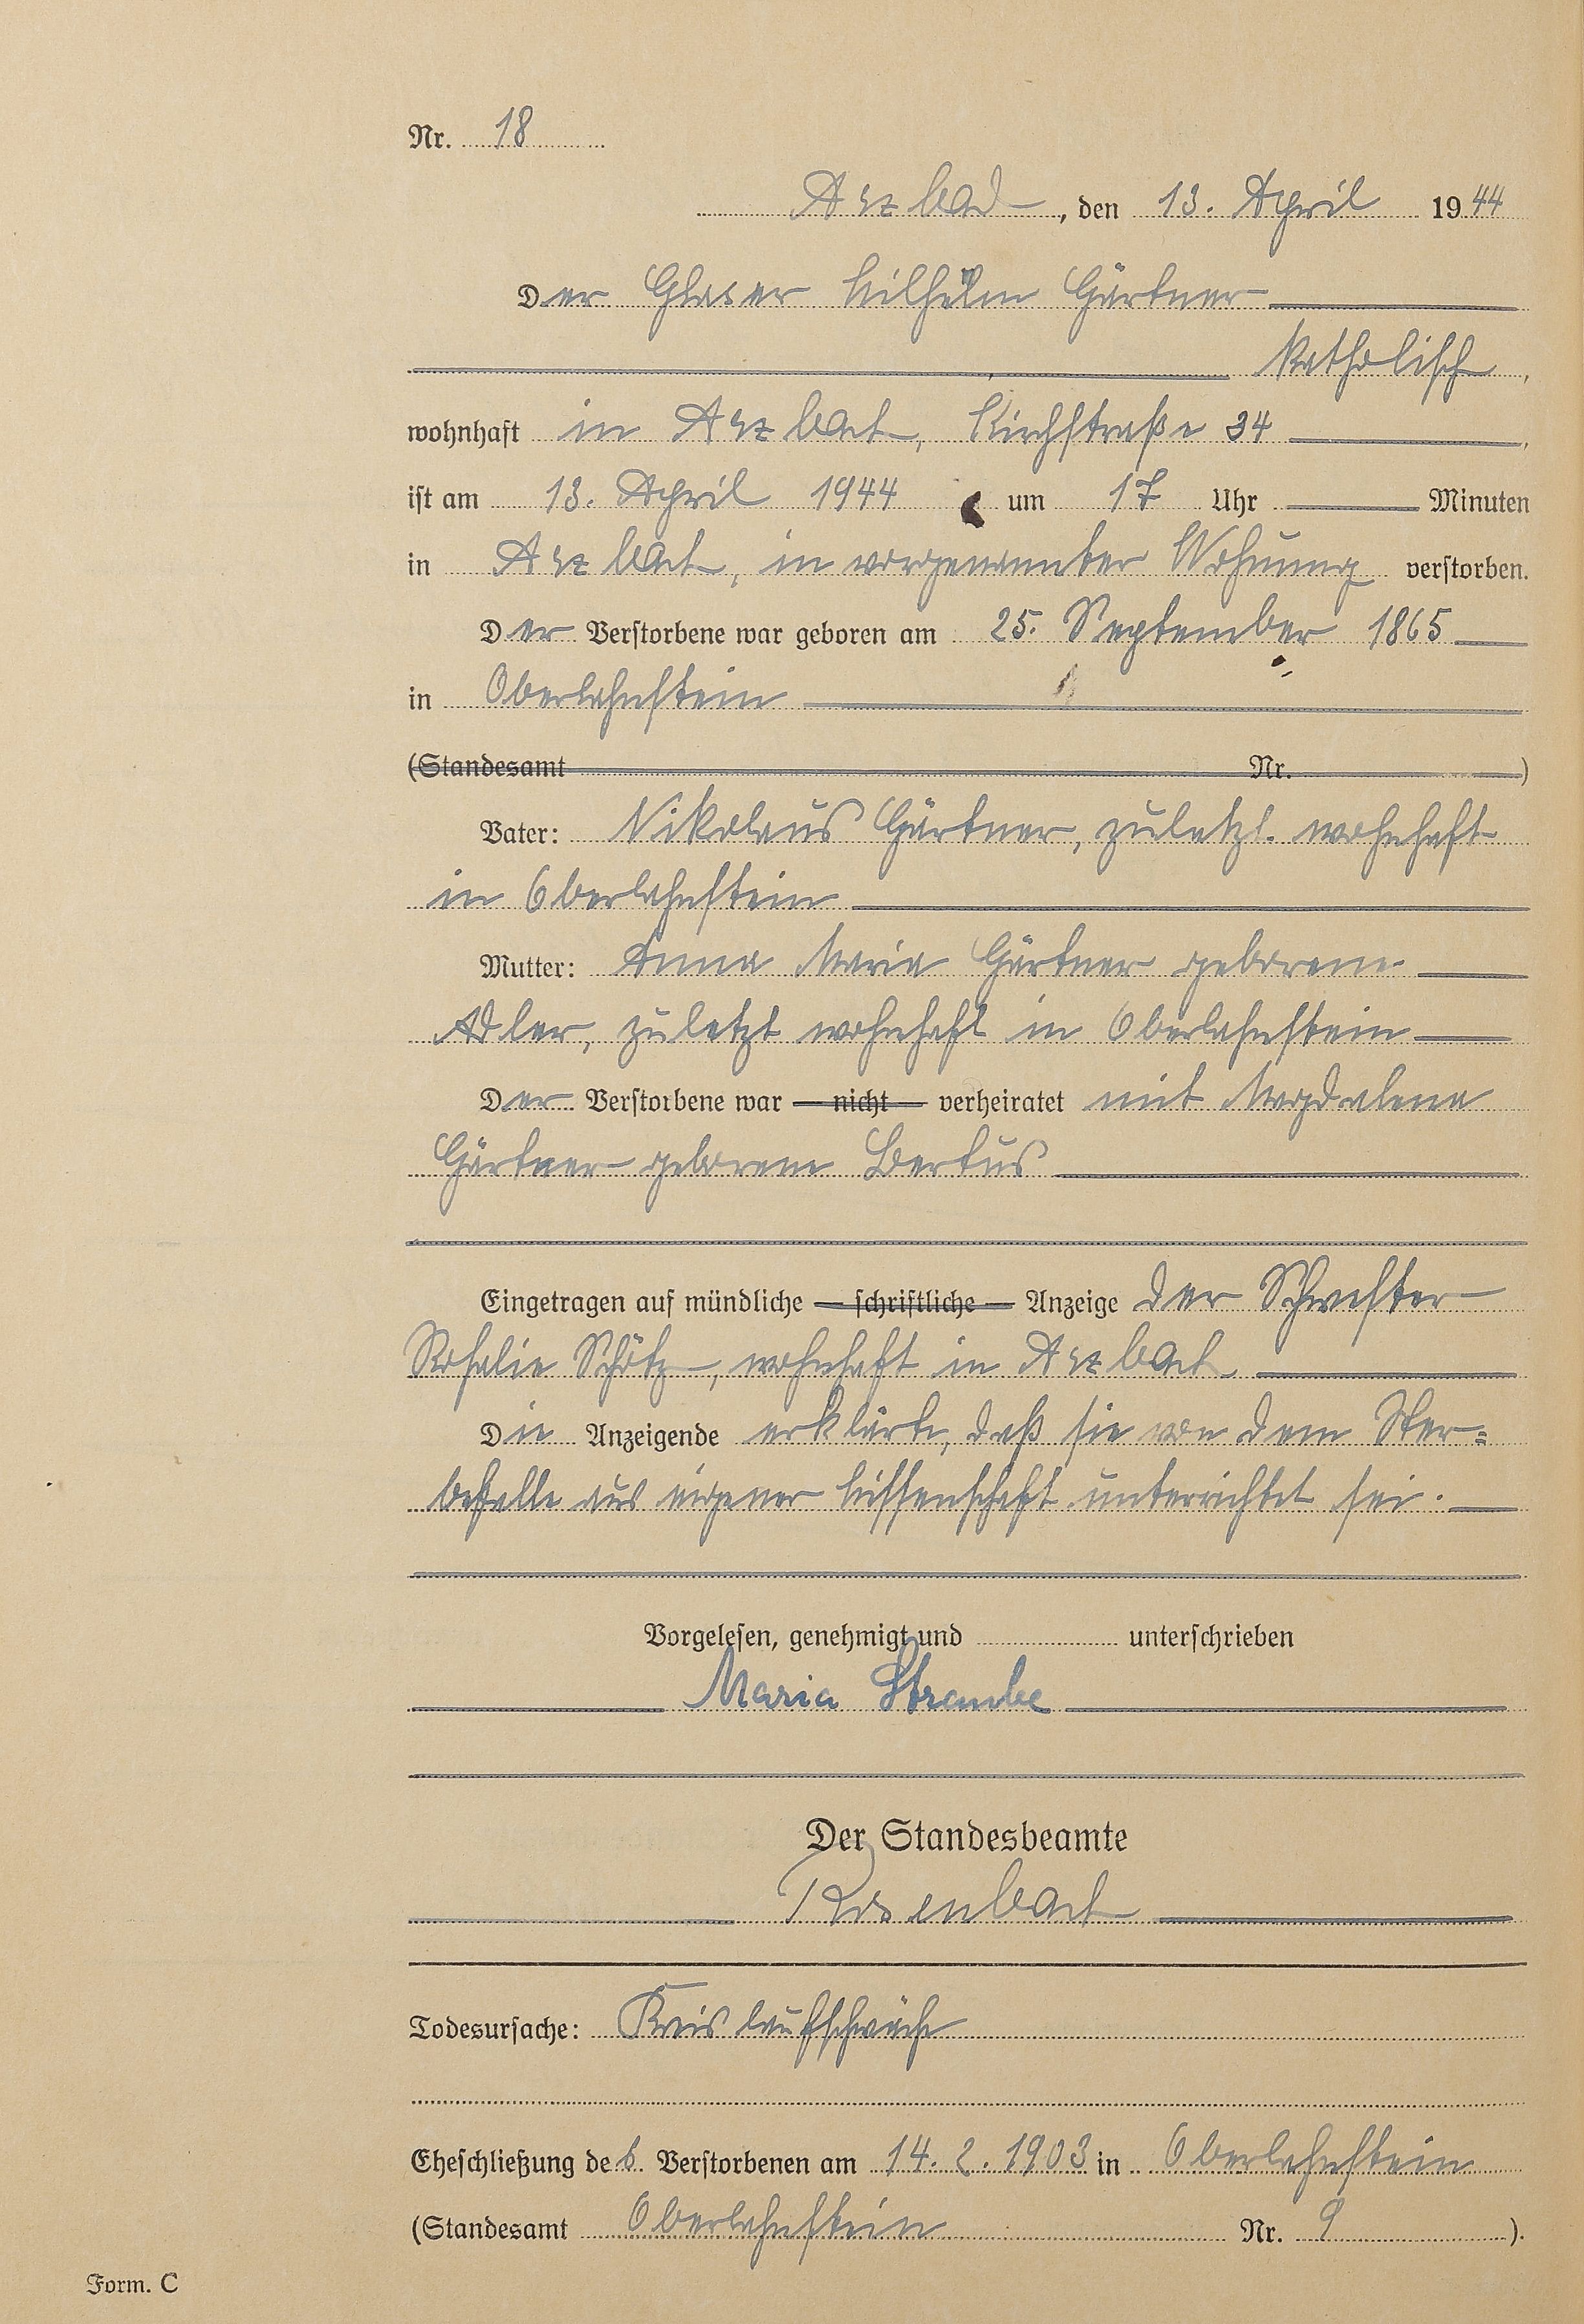 Nr. 18
Arzbach, den 13. April 1944
Der Glaser Wilhelm Gärtner
katholisch,
wohnhaft in Arzbach, Kirchstraße 34,
ist am 13. April 1944 um 17 Uhr Minuten
in Arzbach, in vorgenannter Wohnung verstorben.
Der Verstorbene war geboren am 25. September 1865
in Oberlahnstein
(Standesamt Nr. )
Vater: Nikolaus Gärtner, zuletzt wohnhaft
in Oberlahnstein
Mutter: Anna Maria Gärtner geborene
Adler, zuletzt wohnhaft in Oberlahnstein
Der Verstorbene war nicht verheiratet mit Magdalena
Gärtner geborene Bertus
Eingetragen auf mündliche schriftliche Anzeige der Schwester
Rosalie Schötz, wohnhaft in Arzbach
Die Anzeigende erklärte, daß sie von dem Ster=
befalle aus eigener Wissenschaft unterrichtet sei.
Vorgelesen, genehmigt und unterschrieben
Maria
Der Standesbeamte
Rosenbach
Todesursache: Kreislaufschwäche
Eheschließung des Verstorbenen am 14. 2. 1903 in Oberlahnstein
(Standesamt Oberlahnstein Nr. 9 ).
Form. C